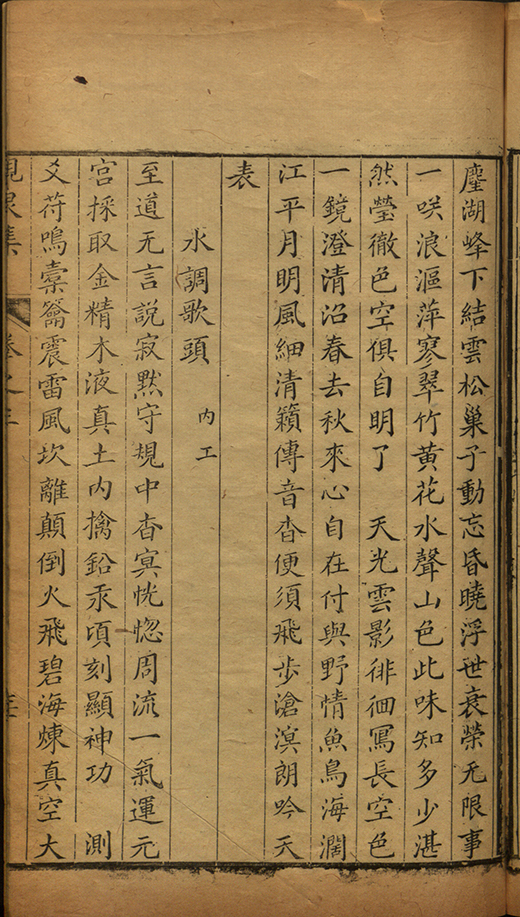 塵湖峰下結雲松巢子動忘昏曉浮世衰榮无限事
一咲浪漚萍寥翠竹黃花水聲山色此味知多少湛
然瑩徹色空俱自明了　天光雲影徘徊寫長空色
一鏡澄清沼春去秋來心自在付與野情魚鳥海濶
江平月明風細清籟傳音杳便須飛步滄溟朗吟天
表
水調歌頭　內工
至道无言說寂默守規中杳冥恍惚周流一氣運元
宮採取金精木液真土內擒鉛汞頃刻顯神功　測
爻苻鳴橐籥震雷風坎離顛倒火飛碧海煉真空大
峴泉集　卷之